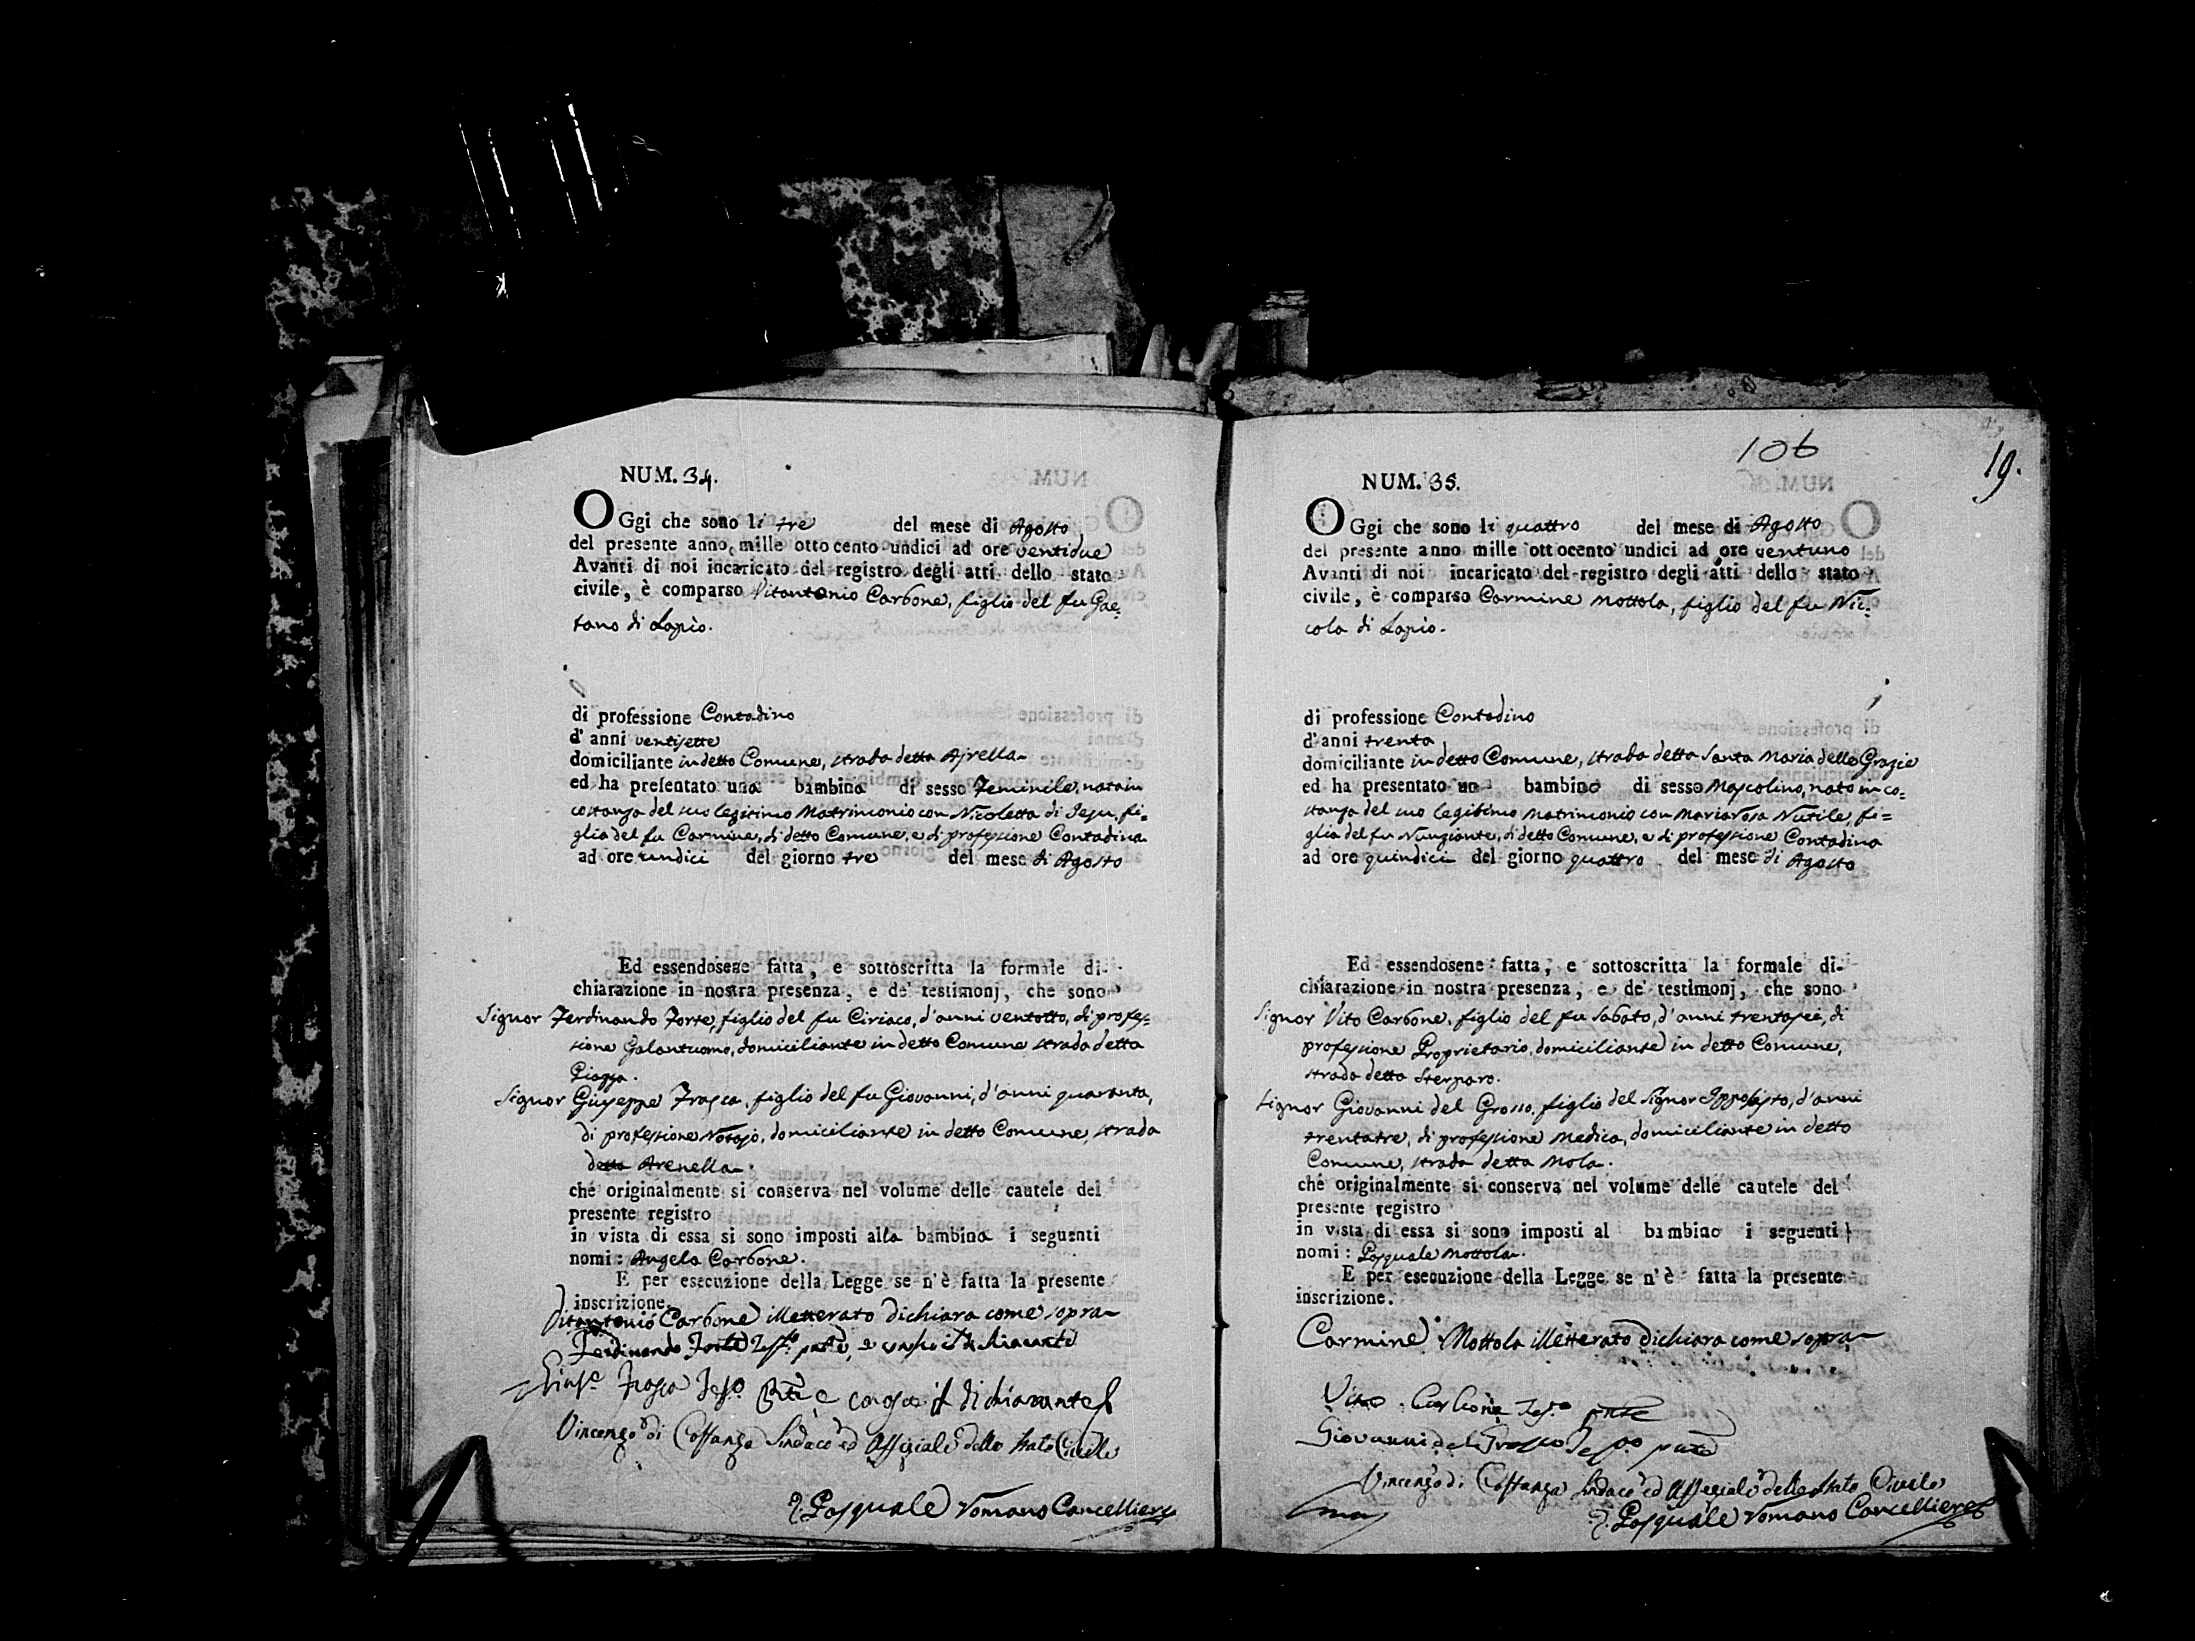 NUM. 34.
OGgi che sono li tre del mese di Agosto
del presente anno mille ottocento undici ad ore ventidue
Avanti di noi incaricato del registro degli atti dello stato
civile, è comparso Vitantonio Carbone, figlio del fu Gae=
tano di Lapio.
di professione Contadino
d'anni ventisette
domiciliante in detto Comune, strada detta
ed ha presentato una bambina di sesso Feminile, nata in
costanza del suo legitimo Matrimonio con Nicoletta di Jesu, fi=
glia del fu Carmine, di detto Comune, e di professione Contadina
ad ore undici del giorno tre del mese di Agosto
Ed essendosene fatta, e sottoscritta la formale di-
chiarazione in nostra presenza, e de' testimonj, che sono
Signor Ferdinando Forte, figlio del fu Ciriaco, d'anni ventotto, di profes=
sione Galantuomo, domiciliante in detto Comune strada detta
Piazza.
Signor Giuseppe Frasca, figlio del fu Giovanni, d'anni quaranta,
di professione Notajo, domiciliante in detto Comune, strada
detta Arenella.
che originalmente si conserva nel volume delle cautele del
presente registro
in vista di essa si sono imposti alla bambina i seguenti
nomi: Angela Carbone.
E per esecuzione della Legge se n'è fatta la presente
inscrizione.
Vitantonio Carbone illetterato dichiara come sopra
Ferdinando Forte
Frasca dichiarante
Vincenzo di Costanza Sindaco ed Offiziale dello Stato Civile
Pasquale Romano Cancelliere
106
19.
NUM. 35.
OGgi che sono li quattro del mese di Agosto
del presente anno mille ottocento undici ad ore ventuno
Avanti di noi incaricato del registro degli atti dello stato
civile, è comparso Carmine Mottola, figlio del fu Nic=
cola di Lapio.
di professione Contadino
d'anni trenta
domiciliante in detto Comune, strada detta Santa Maria delle Grazie
ed ha presentato un bambino di sesso Mascolino, nato in co=
stanza del suo legitimo Matrimonio con Mariarosa Nutile, fi=
glia del fu Nunziante, di detto Comune, e di professione Contadina
ad ore quindici del giorno quattro del mese di Agosto
Ed essendosene fatta, e sottoscritta la formale di-
chiarazione in nostra presenza, e de' testimonj, che sono
Signor Vito Carbone, figlio del fu Sabato, d'anni trentasei, di
professione Proprietario, domiciliante in detto Comune,
strada detta Sterparo.
Signor Giovanni del Grosso, figlio del Signor d'anni
trentatre, di professione Medico, domiciliante in detto
Comune, strada detta Mola.
che originalmente si conserva nel volume delle cautele del
presente registro
in vista di essa si sono imposti al bambino i seguenti
nomi: Pasquale Mottola.
E per esecuzione della Legge se n'è fatta la presente
inscrizione.
Carmine Mottola illetterato dichiara come sopra
Vito Carbone
Giovanni del Grosso
Vincenzo di Costanza Sindaco ed Offiziale dello Stato Civile
Pasquale Romano Cancelliere